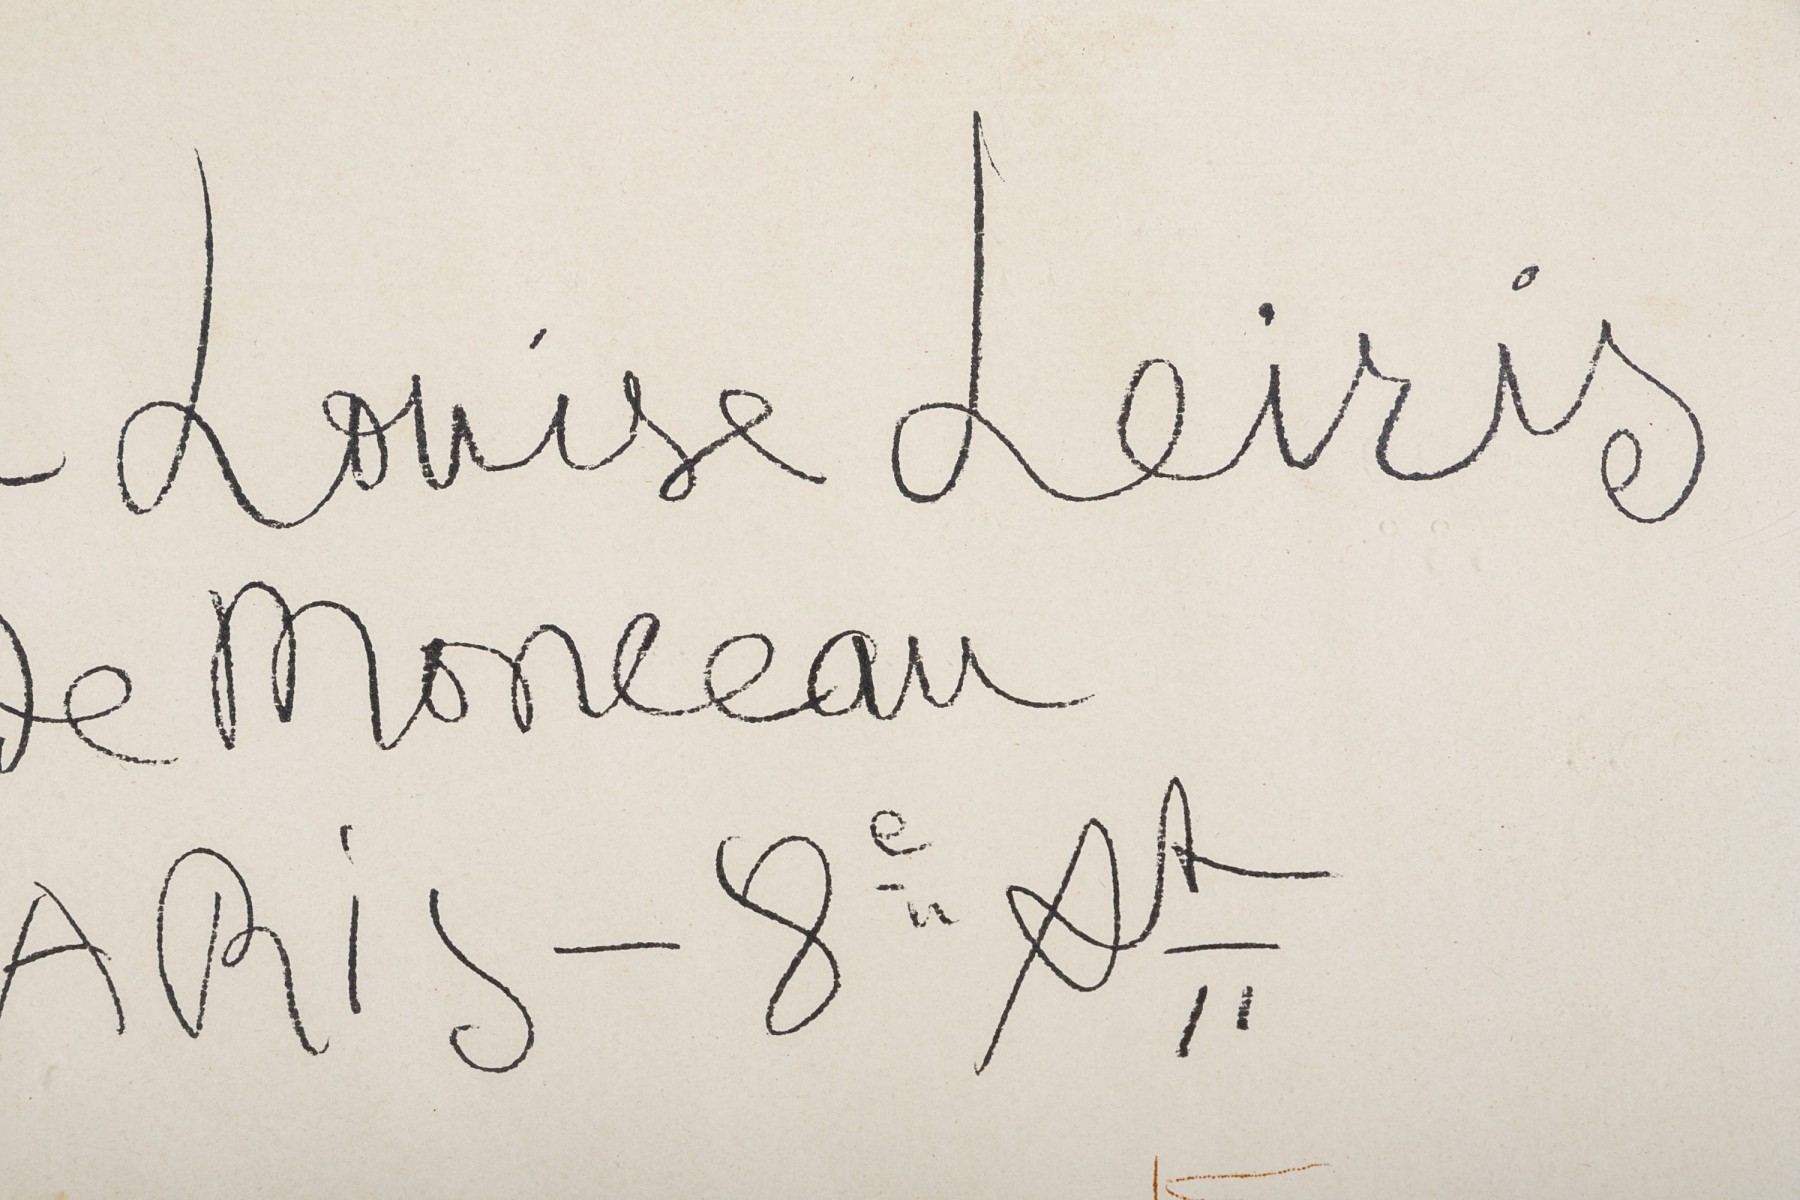 Louise Leiris
De Monceau
ARiS - 8e At